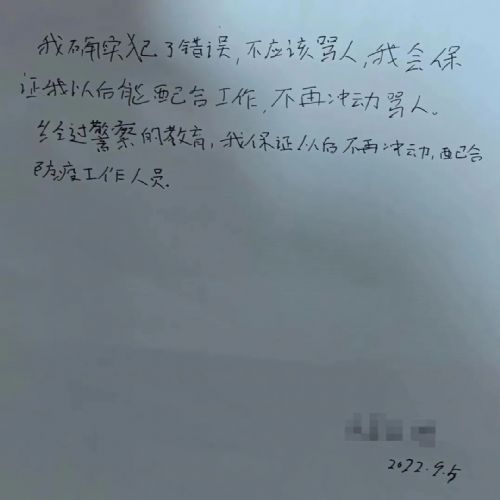 我确实犯了错误，不应该骂人，我会保
证我以后能配合工作，不再冲动骂人。
经过警察的教育，我保证以后不再冲动，配合
防疫工作人员.
2022.9.5